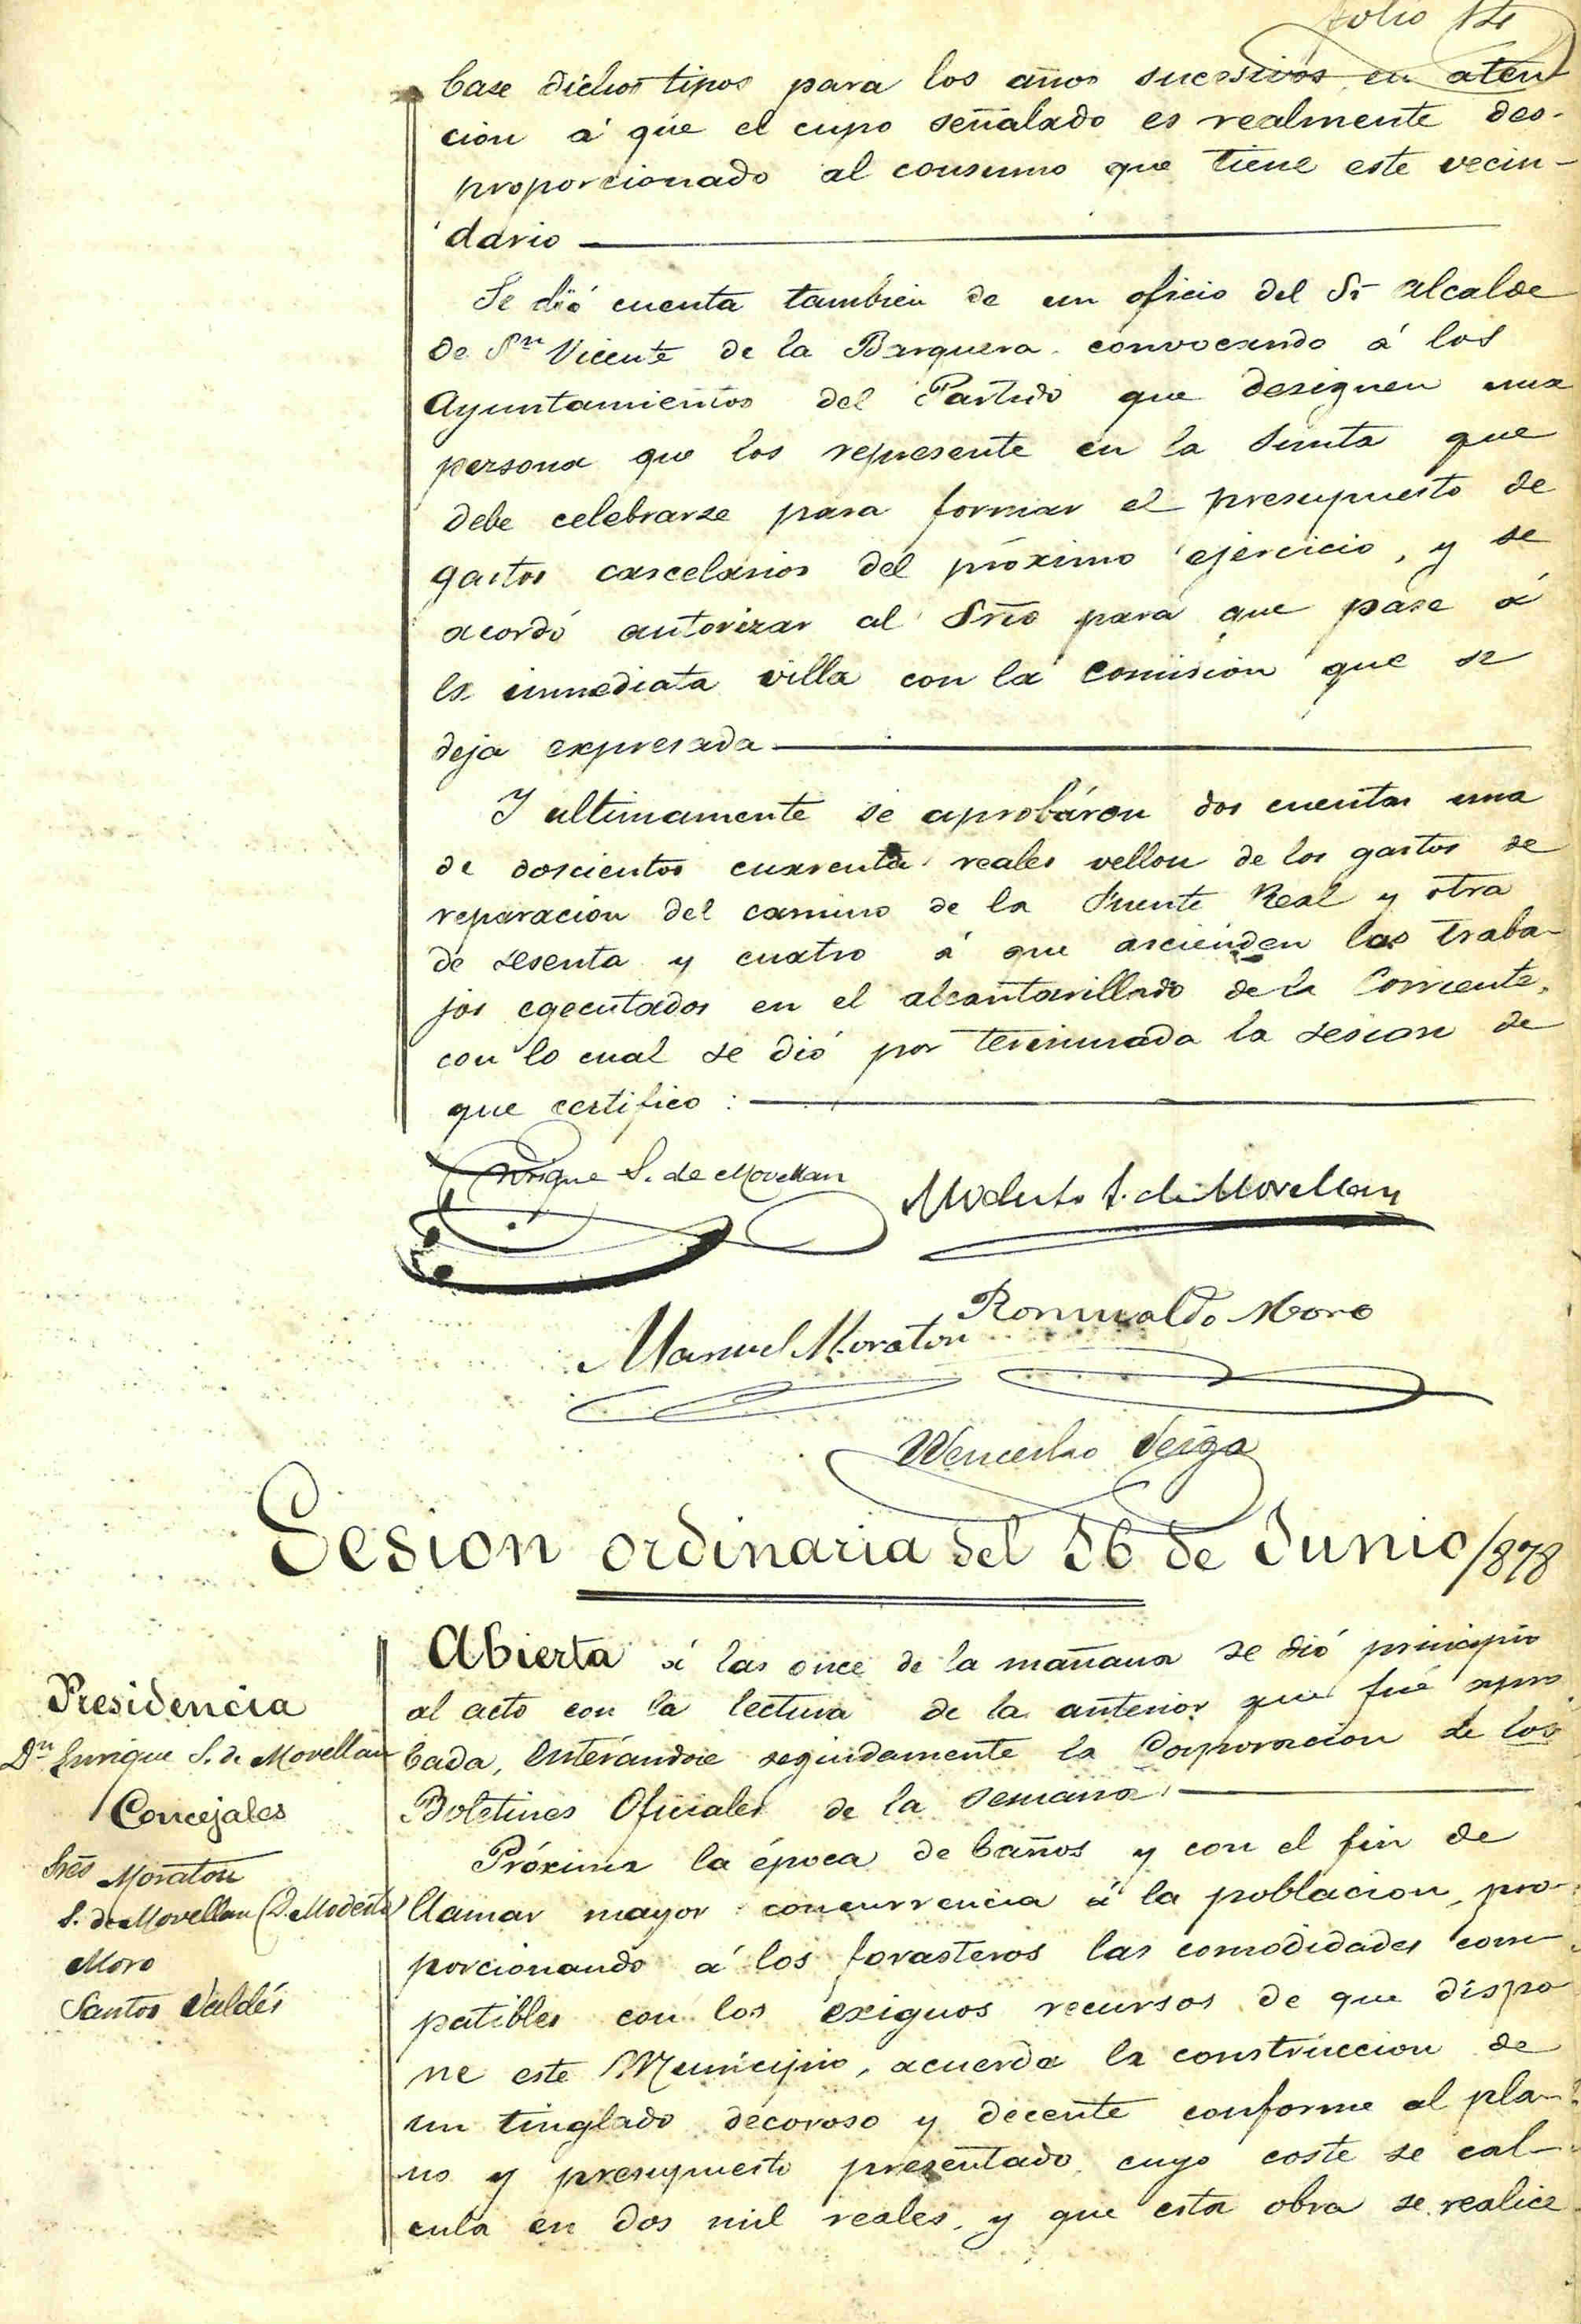 folio 121
base dichos tipos para los años sucesivos en aten
cion á que el cupo señalado es realmente des-
proporcionado al consumo que tiene este vecin-
dario
Se dió cuenta tambien de un oficio del Sr alcalde
de Sn Vicente de la Barquera convocando á los
Ayuntamientos del Partido que designen una
persona que los represente en la Junta que
debe celebrarse para formar el presupuesto de
gastos carcelarios del próximo ejercicio, y se
acordó autorizar al Srio para que pase á
la inmediata villa con la Comision que se
deja expresada
I ultimamente se aprobáron dos cuentas una
de doscientos cuarenta reales vellon de los gastos de
reparacion del camino de la Fuente Real y otra
de sesenta y cuatro á que ascienden los traba-
jos egecutados en el alcantarillado de la Corriente,
con lo cual se dió por terminada la sesion de
que certifico :
Enrique S. de Movellan
Modesto S. de Movellan
Romualdo Moro
Manuel Moraton
Wenceslao Veiga
Sesion ordinaria del 16 de Junio/878
Presidencia
Dn Enrique S. de Movellan
Concejales
Sres Moraton
S. de Movellan (D. Modesto)
Moro
Santos Valdés
Abierta á las once de la mañana se dió principio
al acto con la lectura de la anterior que fué apro
bada, enterándose seguidamente la Corporacion de los
Boletines Oficiales de la semana.
Próxima la época de baños y con el fin de
llamar mayor concurrencia á la poblacion, pro-
porcionando á los forasteros las comodidades com-
patibles con los exiguos recursos de que dispo
ne este Municipio, acuerda la construccion de
un tinglado decoroso y decente conforme al pla-
no y presupuesto presentado, cuyo coste se cal-
cula en dos mil reales, y que esta obra se realice